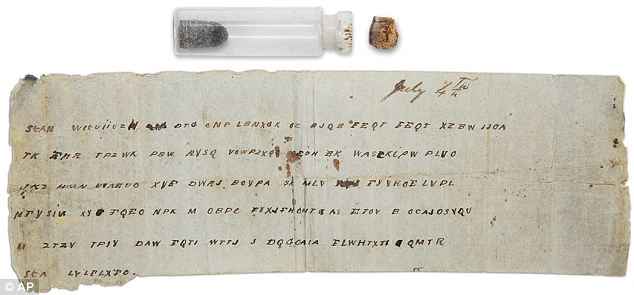 July 4th
SEAN WIEUIIUZH DTG CNP LBNXGK OZ BJQB FEQT FEQT XZBW JJOA
TK FHR TPZWK PBW RYSQ VOWPZXGG OEPF EK WASFKIPW PLVO
JKZ HMN NVAEUD XYE DWRJ BOYPA SK MLV FYYRDE LVPL
MFYSIN XY FQEO NPK M OBPC FYXJFHOHT AS ETOV B OCAJDSVQU
M ZTZV TPIY DAW FQTI WTTJ J DQGOAIA FLWHTXTI QMTR
SEA LVLFLXFO.
© AP